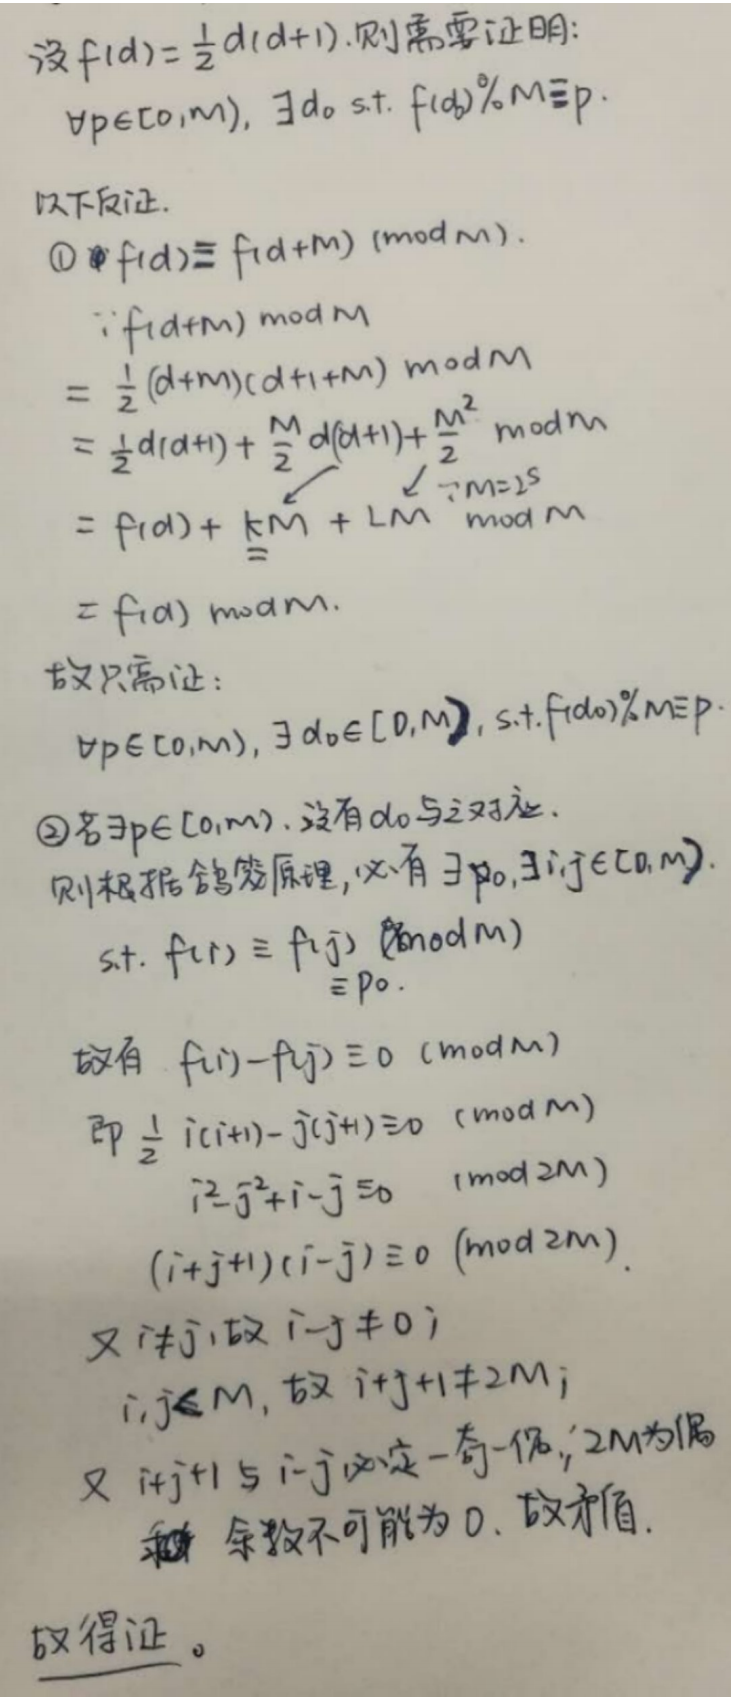 设 f(d) = 1/2 d(d+1). 则需要证明:
∀p∈[0,M), ∃d₀ s.t. f(d₀)%M≡p.
以下反证.
① f(d) ≡ f(d+M) (mod M).
∵ f(d+M) mod M
= 1/2 (d+M)(d+1+M) mod M
= 1/2 d(d+1) + M/2 d(d+1) + M²/2 mod M
∵ M=2^s
= f(d) + kM + LM mod M
= f(d) mod M.
故只需证:
∀p∈[0,M), ∃d₀∈[0,M), s.t. f(d₀)%M≡p.
② 若∃p∈[0,M). 没有d₀与之对应.
则根据鸽笼原理, 必有 ∃p₀, ∃i,j∈[0,M).
s.t. f(i) ≡ f(j) (mod M)
≡p₀.
故有 f(i)-f(j)≡0 (mod M)
即 1/2 i(i+1)-j(j+1)≡0 (mod M)
i²-j²+i-j≡0 (mod 2M)
(i+j+1)(i-j)≡0 (mod 2M).
又 i≠j, 故 i-j≠0;
i,j<M, 故 i+j+1≠2M;
又 i+j+1 与 i-j 必定一奇一偶, 2M为偶
余数不可能为0. 故矛盾.
故得证。